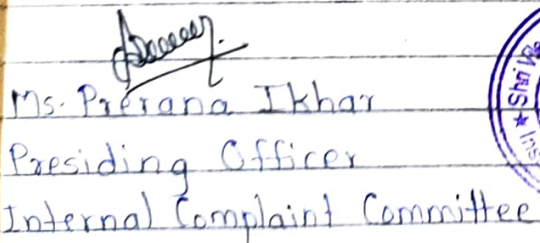 Ms. Prerana Ikhar
Presiding Officer
Internal Complaint Committee